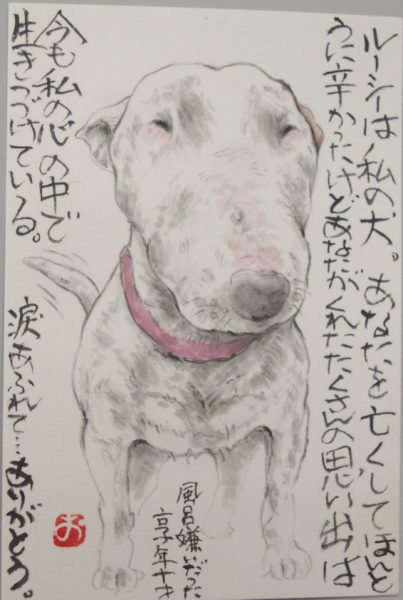 ルーシーは私の犬。あなたを亡くしてほんと
うに辛かったけどあなたがくれたたくさんの思い出は
今も私の心の中で
生きつづけている。
涙あふれて…ありがとう。
風呂嫌いだった
享年十才
お